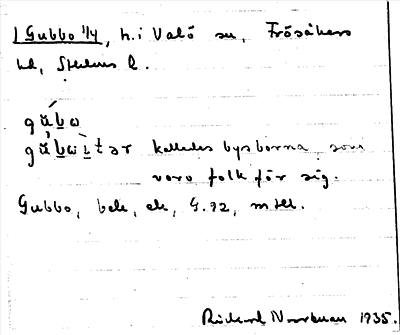 Gubbo 1/4, h. i Valö sn, Frösåkers
hd, Sthlms l.
gŭ́bω
gŭ́bωìtər kallades bysborna, som
voro folk för sig.
Gubbo, beb, ek, G.92, mtl.
Rickard Norrman 1935.